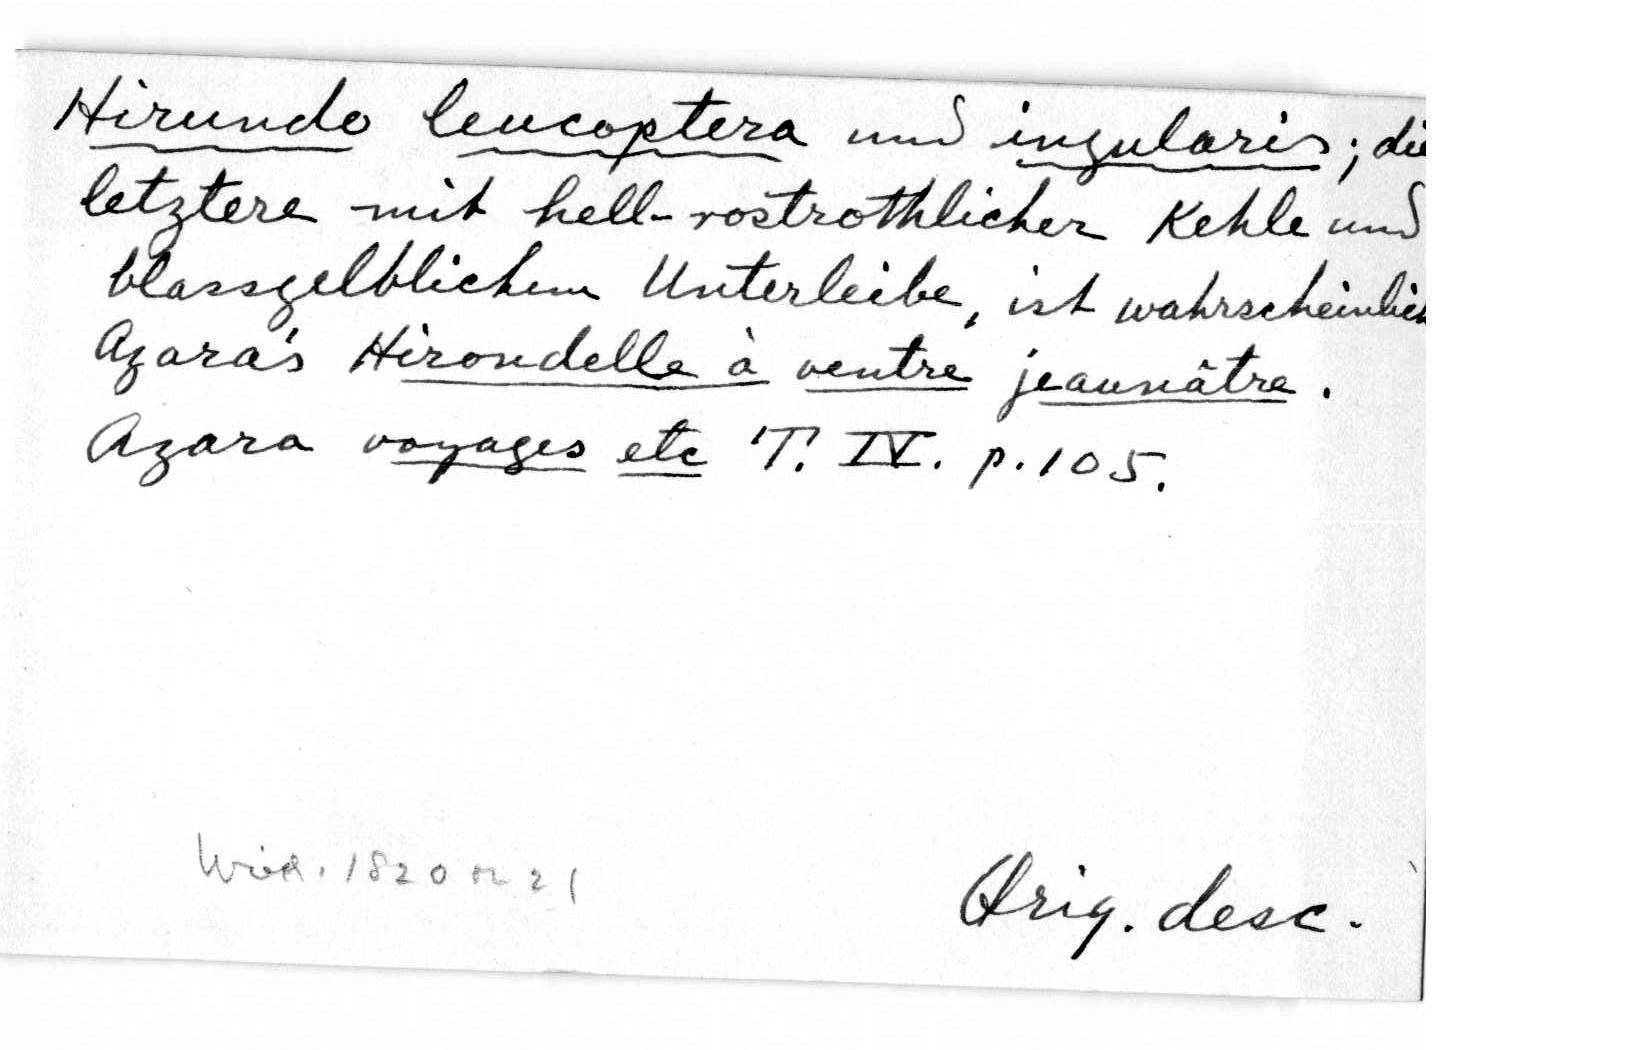 Hirundo leucoptera und ingularis; die
letztere mit hell-rostrothlicher Kehle und
blassgelblichem Unterleibe, ist wahrscheinlich
Azara's Hirondelle à ventre jeaunâtre.
Azara voyages etc T. IV. p. 105.
Wied. 1820 or 21
Orig. desc.